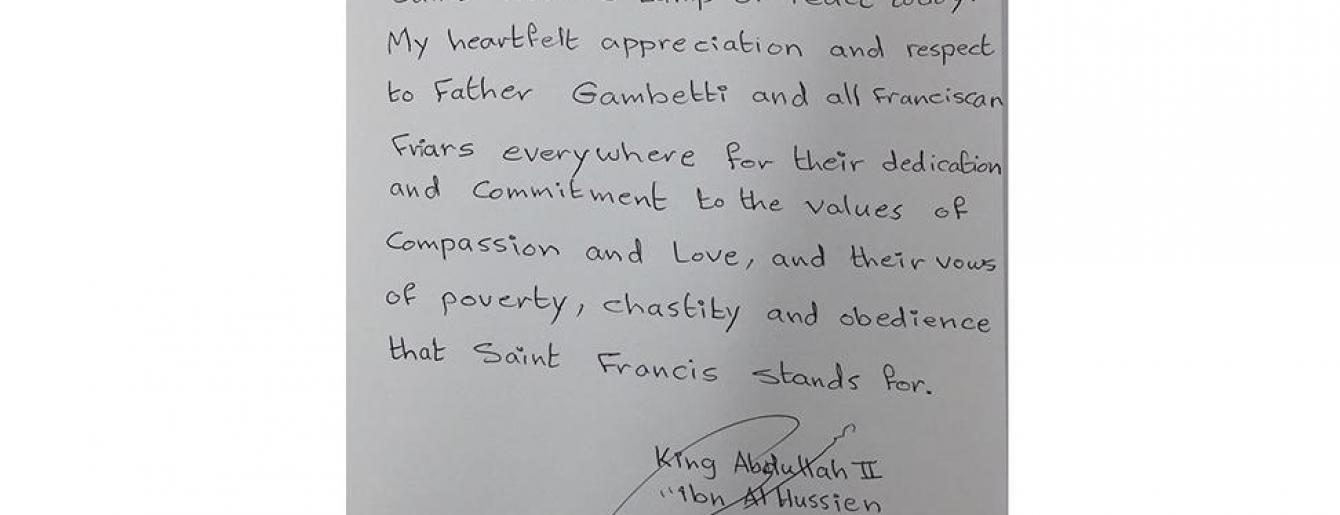 My heartfelt appreciation and respect
to Father Gambetti and all Franciscan
Friars everywhere for their dedication
and Commitment to the values of
Compassion and Love, and their vows
of poverty, chastity and obedience
that Saint Francis stands for.
King Abdullah II
Ibn Al Hussien